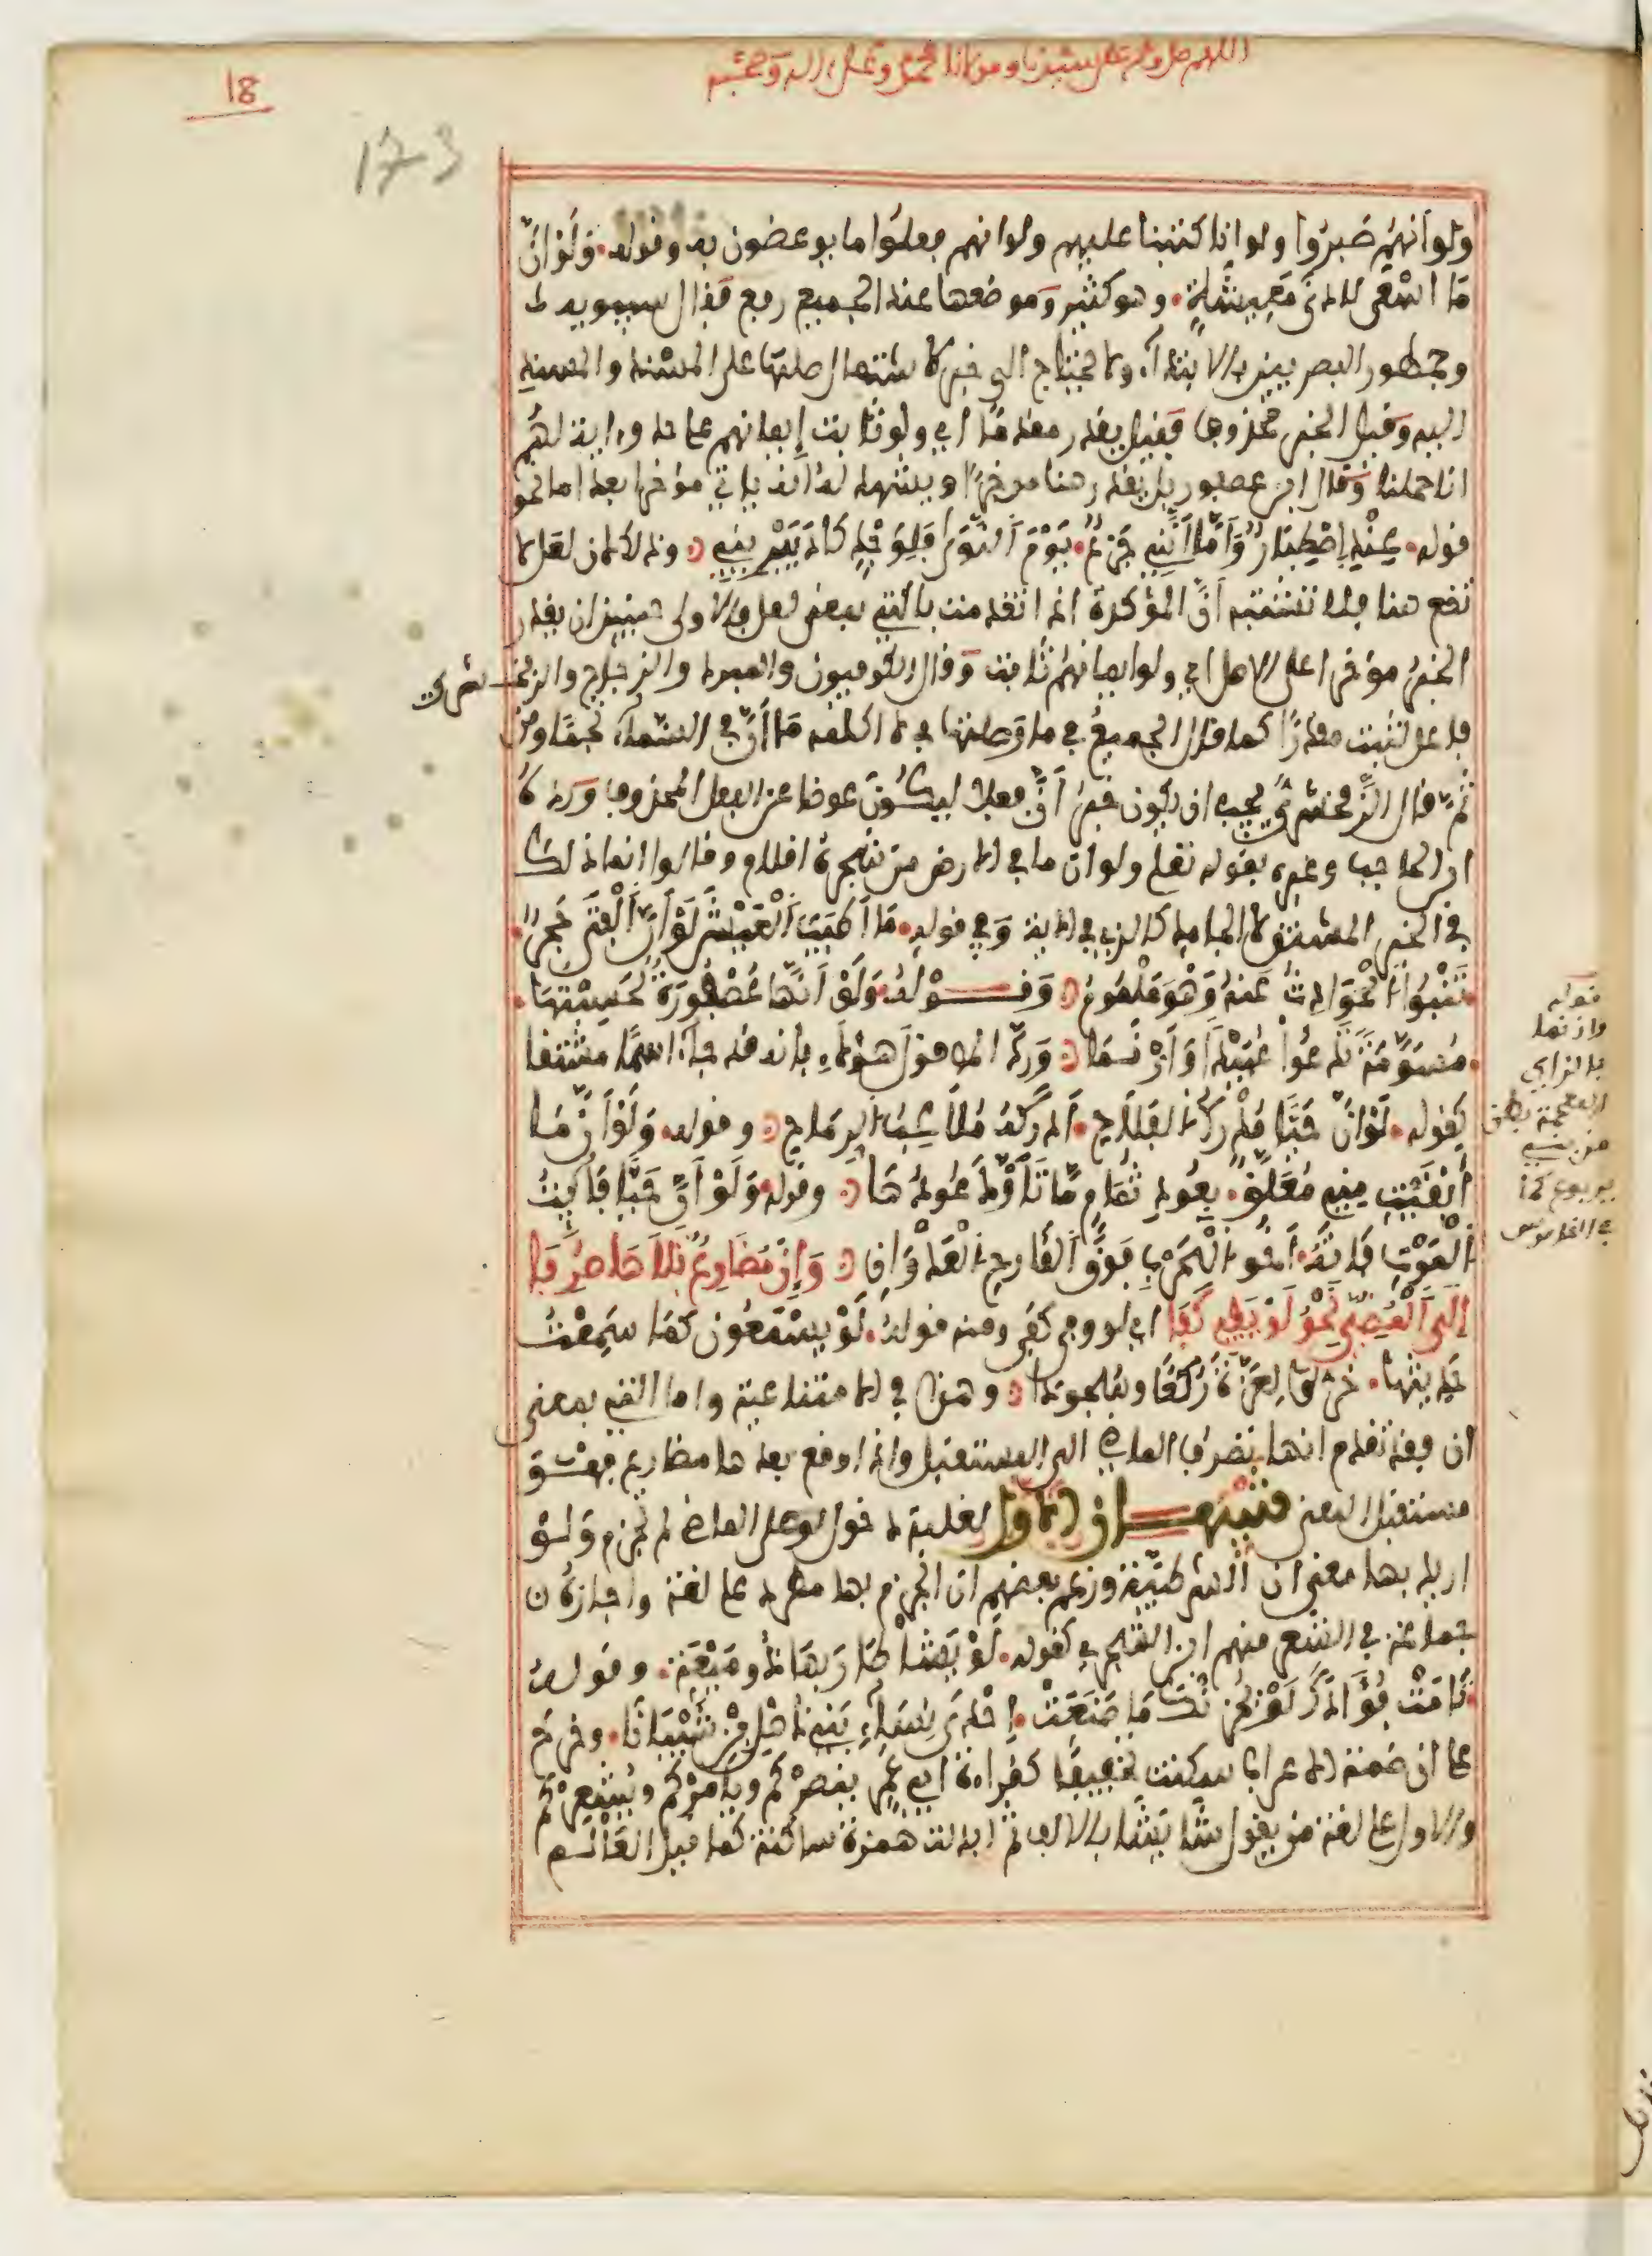 اللهم صل وسلم على سيدنا ومولانا محمد وعلى اله وصحبه
18
173
ولو انهم صبروا ولو انا كتبنا عليهم ولو انهم فعلوا ما يوعضون به وقوله ولو ان
ما اسعى لادنى معيشة وهو كثير وموضعها عند الجميع رفع فقال سيبويه
وجمهور البصريين بالابتداء ولا تحتاج الى خبر لاشتمال صلتها على المسند والمسند
اليه وقيل الخبر محذوف فقيل يقدر مقدما اي ولو ثابت إيمانهم على حد وءاية لهم
انا حملنا وقال ابن عصفور بل يقدر هنا مؤخرا ويشهد له انه ياتي مؤخرا بعد اما نحو
قوله عندي اصطبار واما انني جزع يوم النوى فلوجد كاد يبريني وذلك لان لعل لا
تقع هنا فلا تشتبه أن المؤكدة اذا تقدمت بالتي بمعنى لعل والاولى حينئذ ان يقدر
الخبر مؤخرا على الاصل اي ولو ايمانهم ثابت وقال الكوفيون والمبرد والزجاج والزمخشري
فاعل لثبت مقدرا كما قال الجميع في ما وصلتها في لا اكلمه ما أن في السماء نجما ومن
ثم قال الزمخشري يجب ان يكون خبر أن فعلا ليكون عوضا عن الفعل المحذوف ورده
ابن الحاجب وغيره بقوله تعلى ولو ان ما في الارض من شجرة اقلام وقالوا انما ذلك
في الخبر المشتق لا الجامد كالذي في الاية وفي قوله ما اطيب العيش لو ان الفتى حجر
تنبوا الحوادث عنه وهو ملموم وقوله ولو انها عصفورة لحسبتها
مسومة تدعوا عبيدا وازنما ورد المص قول هؤلاء بانه قد جاء اسما مشتقا
كقوله لو ان حيا مدرك الفلاح ادركه ملاعب الرماح وقوله ولو ان ما
أبقيت مني معلق بعود ثمام ما تأود عودها وقوله ولو أن حيا فائت
الموت فاته أخو الحرب فوق القارح العدوان وإن مضارع تلاها صرفا
الى المضي نحو لو يفي كفى اي لو وفى كفى ومنه قوله لو يسمعون كما سمعت
حديثها خروا لعزة ركعا وسجودا وهذا في الامتناعية واما التي بمعنى
ان فقد تقدم انها تصرف الماضي الى المستقبل واذا وقع بعدها مضارع فهو
مستقبل المعنى تنبيهان الاول لغلبة دخول لو على الماضي لم تجزم ولو
اريد بها معنى ان الشرطية وزعم بعضهم ان الجزم بها مطرد على لغة واجازه
جماعة في الشعر منهم ابن الشجري كقوله لو يشأ طار بها ذو ميعة وقوله
تامت فؤادك لو يحزنك ما صنعت إحدى نساء بني ذهل بن شيبانا وخرج
على ان ضمة الاعراب سكنت تخفيفا كقراءة ابي عمرو ينصركم ويامركم ويشعركم
والاول على لغة من يقول شا يشا بالالف ثم ابدلت همزة ساكنة كما قيل العالم
قوله
وازنما
بالزاي
المعجمة بطن
من بني
يربوع كما
في القاموس